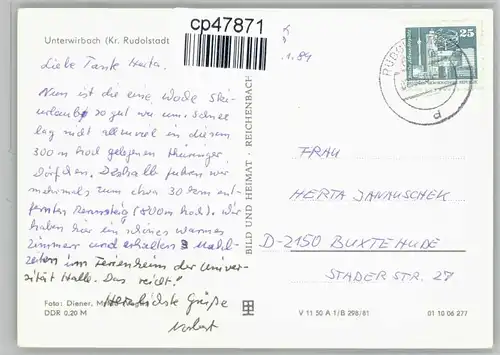 Unterwirbach (Kr. Rudolstadt
cp47871
25
.1.84
Liebe Tante Herta.
Nun ist die eine Woche Ski-
urlaub so gut wie um. Schnee
lag nicht allzuviel in diesem
300 m hoch gelegenen Thüringer
Dörfchen. Deshalb fuhren wir
mehrmals zum etwa 30 km ent-
fernten Rennsteig (800m hoch). Wir
haben hier ein schönes warmes
Zimmer und erhalten 3 Mahl-
zeiten im Ferienheim der Univer-
sität Halle. Das reicht!
Herzlichste Grüße
Foto: Diener,
DDR 0,20 M
BILD UND HEIMAT · REICHENBACH
FRAU
HERTA JANAUSCHEK
D-2150 BUXTEHUDE
STADER STR. 27
V 11 50 A 1/B 298/81
01 10 06 277